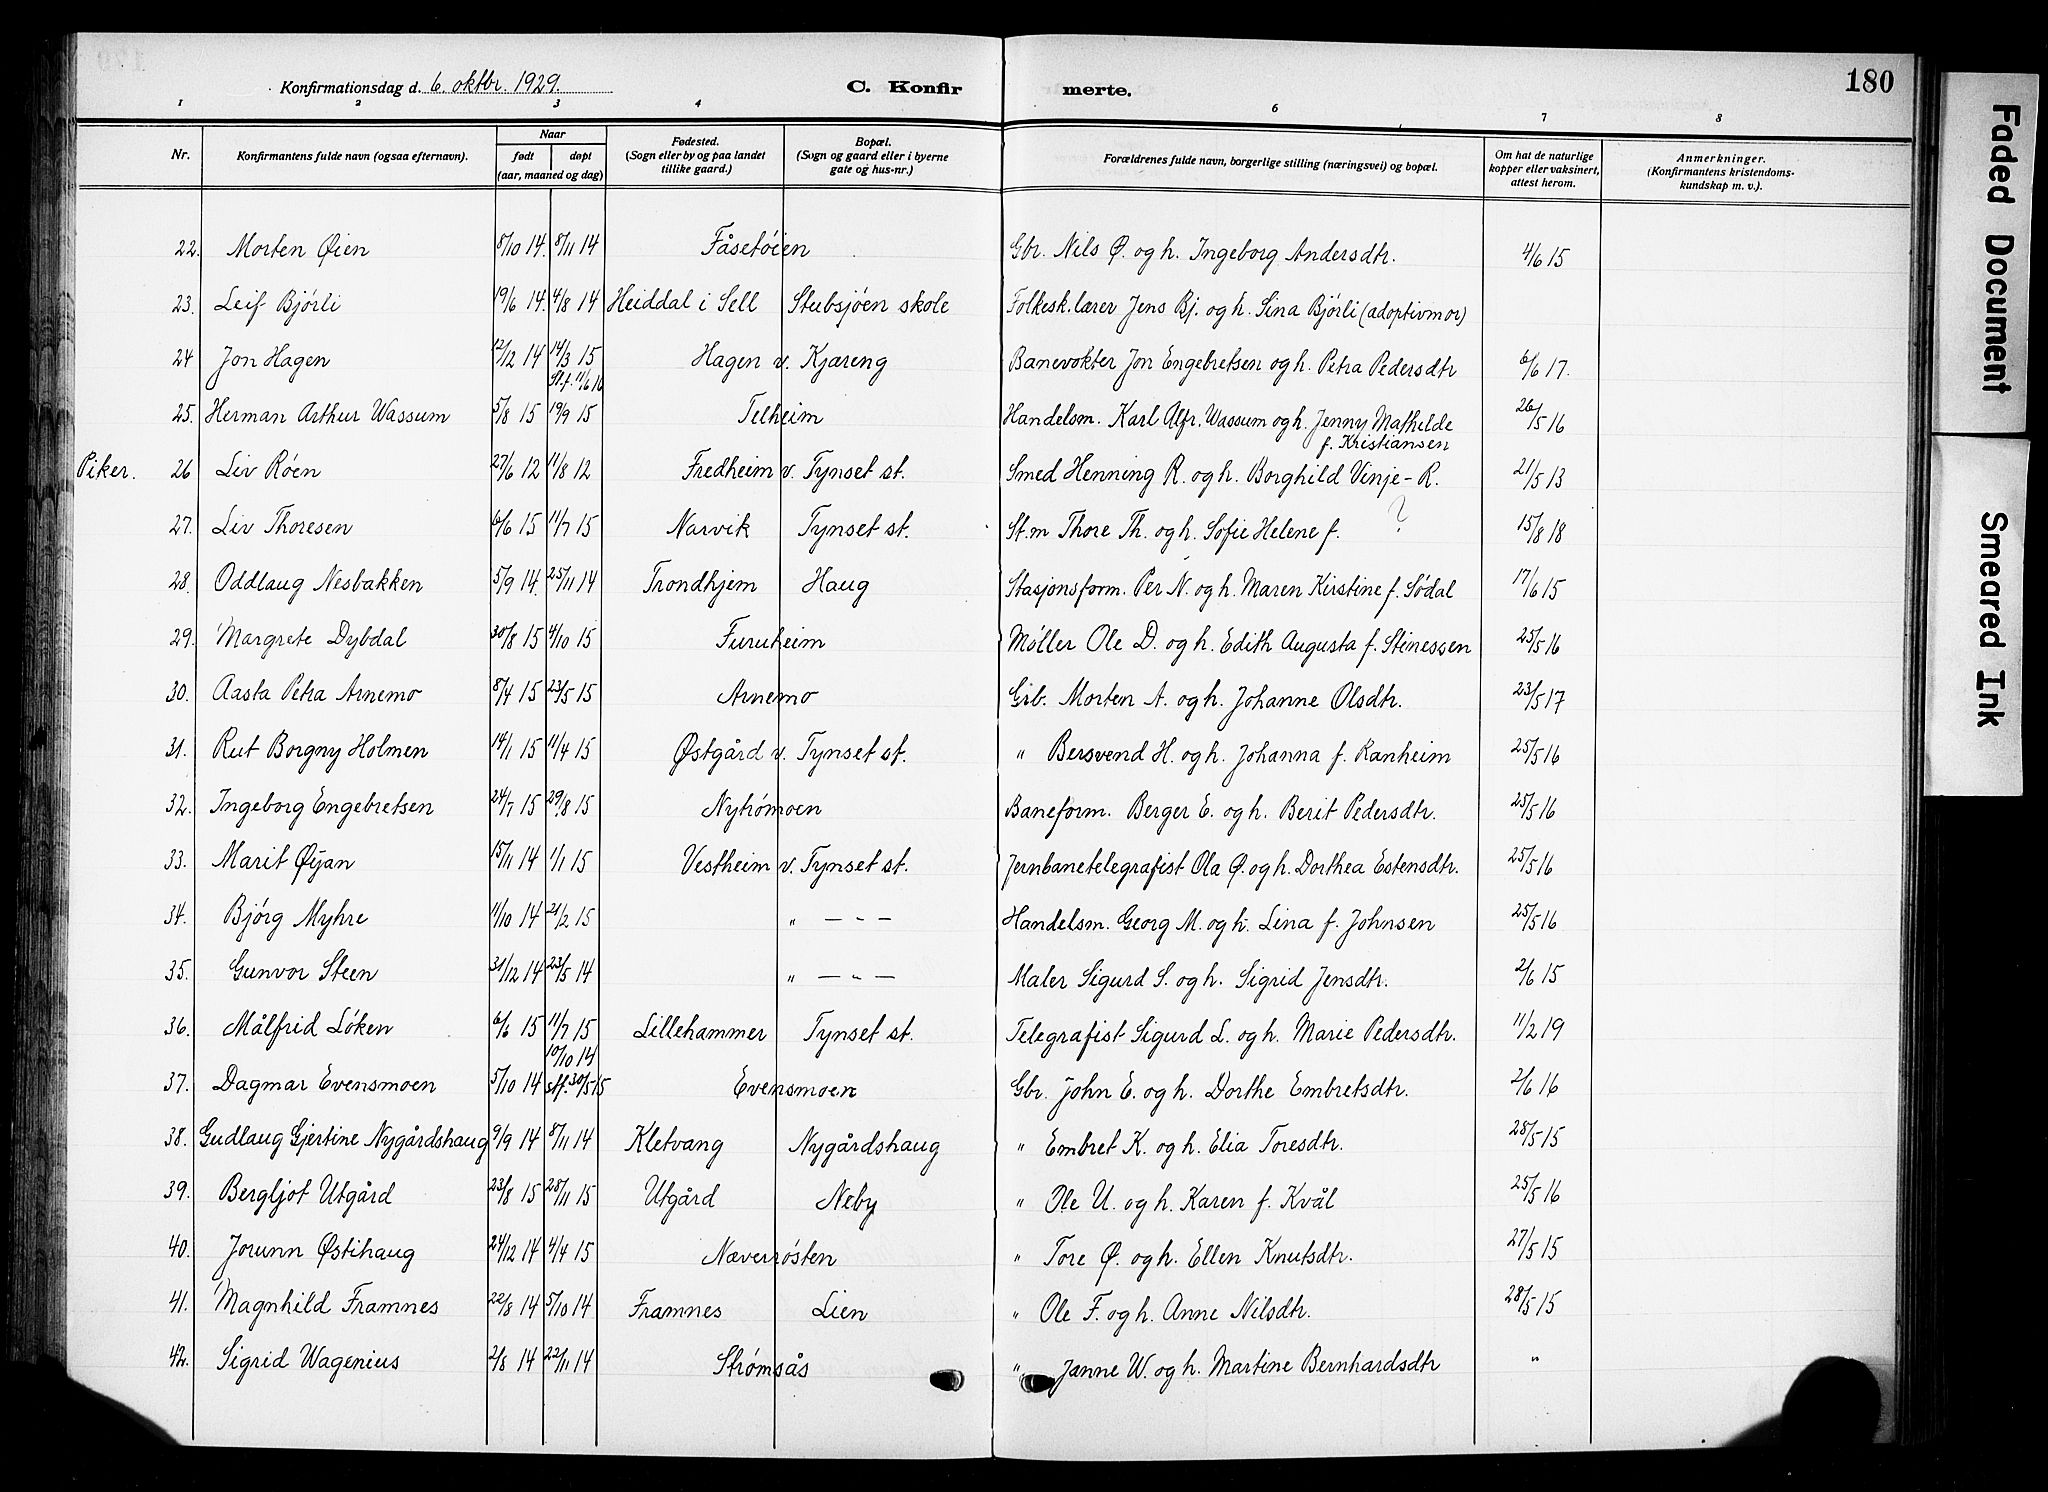 Konfirmationsdag d. 6. oktbr. 1929. C. Konfirmerte. 180
1 2 3 4 5 6 7 8
Nr. Konfirmantens fulde navn (ogsaa efternavn). Naar født døpt (aar, maaned og dag) Fødested. (Sogn eller by og paa landet tillike gaard.) Bopæl. (Sogn og gaard eller i byerne gate og hus-nr.) Forældrenes fulde navn, borgerlige stilling (næringsvei) og bopæl. Om hat de naturlige kopper eller vaksinert, attest herom. Anmerkninger. (Konfirmantens kristendomskundskap m. v.).
22. Morten Øien 8/10 14. 8/11 14 Fåsetøien Gbr. Nils Ø. og h. Ingeborg Andersdtr. 4/6 15
23. Leif Bjørli 19/6 14. 4/8 14 Heiddal i Sell Stubsjøen skole Folkesk.lærer Jens Bj. og h. Sina Bjørli (adoptivmor)
24 Jon Hagen 12/12 14 14/3 15 Hagen v. Kjæreng Banevokter Jon Engebretsen og h. Petra Pedersdtr 6/6 17.
St.f. 11/6 16
25. Herman Arthur Wassum 5/8 15 19/9 15 Telheim Handelsm. Karl Alfr. Wassum og h. Jenny Mathilde f. Kristiansen 26/5 16
Piker. 26 Liv Røen 27/6 12 11/8 12 Fredheim v. Tynset st. Smed Henning R. og h. Borghild Vinje-R. 21/5 13
27. Liv Thoresen 6/6 15 11/7 15 Narvik Tynset st. St.m Thore Th. og h. Sofie Helene f. ? 15/8 18
28. Oddlaug Nesbakken 5/9 14. 25/11 14 Trondhjem Haug Stasjonsform. Per N. og h. Maren Kirstine f. Sødal 17/6 15
29. Margrete Dybdal 30/8 15 4/10 15 Furuheim Møller Ole D. og h. Edith Augusta f. Steinessen 25/5 16
30. Aasta Petra Arnemo 8/4 15 23/5 15 Arnemo Grb. Morten A. og h. Johanne Olsdtr. 23/5 17
31. Rut Borgny Holmen 14/1 15 11/4 15 Østgård v. Tynset st. " Bersvend H. og h. Johanna f. Ranheim 25/5 16
32. Ingeborg Engebretsen 24/7 15 29/8 15 Nytrømoen Baneform. Berger E. og h. Berit Pedersdtr. 25/5 16
33. Marit Øijan 15/11 14 1/1 15 Vestheim v. Tynset st. Jernbanetelegrafist Ola Ø. og h. Dorthea Estensdtr. 25/5 16
34. Bjørg Myhre 11/10 14 21/2 15 " — " — Handelsm. Georg M. og h. Lina f. Johnsen 25/5 16
35. Gunvor Steen 31/12 14 23/5 14 " — " — Maler Sigurd S. og h. Sigrid Jensdtr. 2/6 15
36. Målfrid Løken 6/6 15 11/7 15 Lillehammer Tynset st. Telegrafist Sigurd L. og h. Marie Pedersdtr. 11/2 19
37. Dagmar Evensmoen 5/10 14 10/10 14 stf. 30/5 15 Evensmoen Gbr. John E. og h. Dorthe Embretsdtr. 2/6 16
38. Gudlaug Gjertine Nygårdshaug 9/9 14 8/11 14 Kletvang Nygårdshaug " Embret K. og h. Elia Toresdtr. 28/5 15
39. Bergljot Utgård 23/8 15 28/11 15 Utgård Neby " Ole U. og h. Karen f. Kvål 25/5 16
40. Jorunn Østihaug 24/12 14 4/4 15 Næverrøsten " Tore Ø. og h. Ellen Knutsdtr. 27/5 15
41. Magnhild Framnes 22/8 14 5/10 14 Framnes Lien " Ole F. og h. Anne Nilsdtr. 28/5 15
42. Sigrid Wagenius 2/8 14 22/11 14 Strømsås " Janne W. og h. Martine Bernhardsdtr "
Faded Document
Smeared Ink